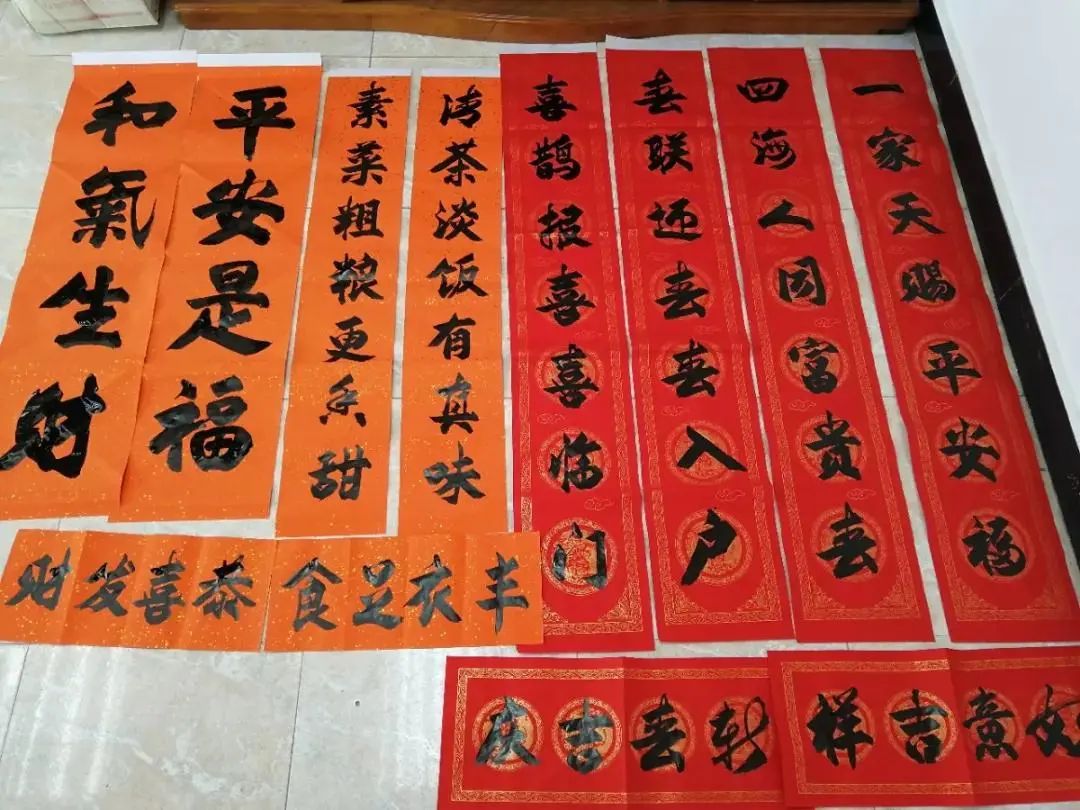 一家天赐平安福
四海人同富贵春
春联迎春春入户
喜鹊报喜喜临门
清茶淡饭有真味
素菜粗粮更香甜
平安是福
和氣生财
丰衣足食
恭喜发财
如意吉祥
新春吉庆